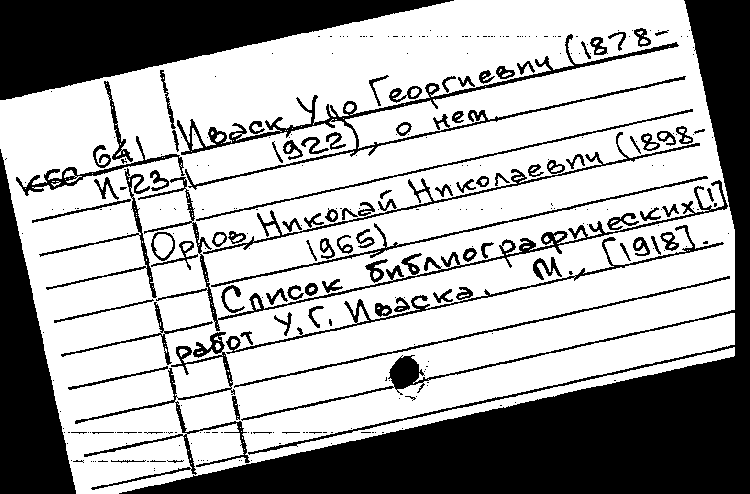 Иваск, Удо Георгиевич (1878-
1922), о нем.
КБС 641
И-23-1
Орлов, Николай Николаевич (1898-
1965).
Список библиографических[!]
работ У.Г. Иваска. М., [1918].